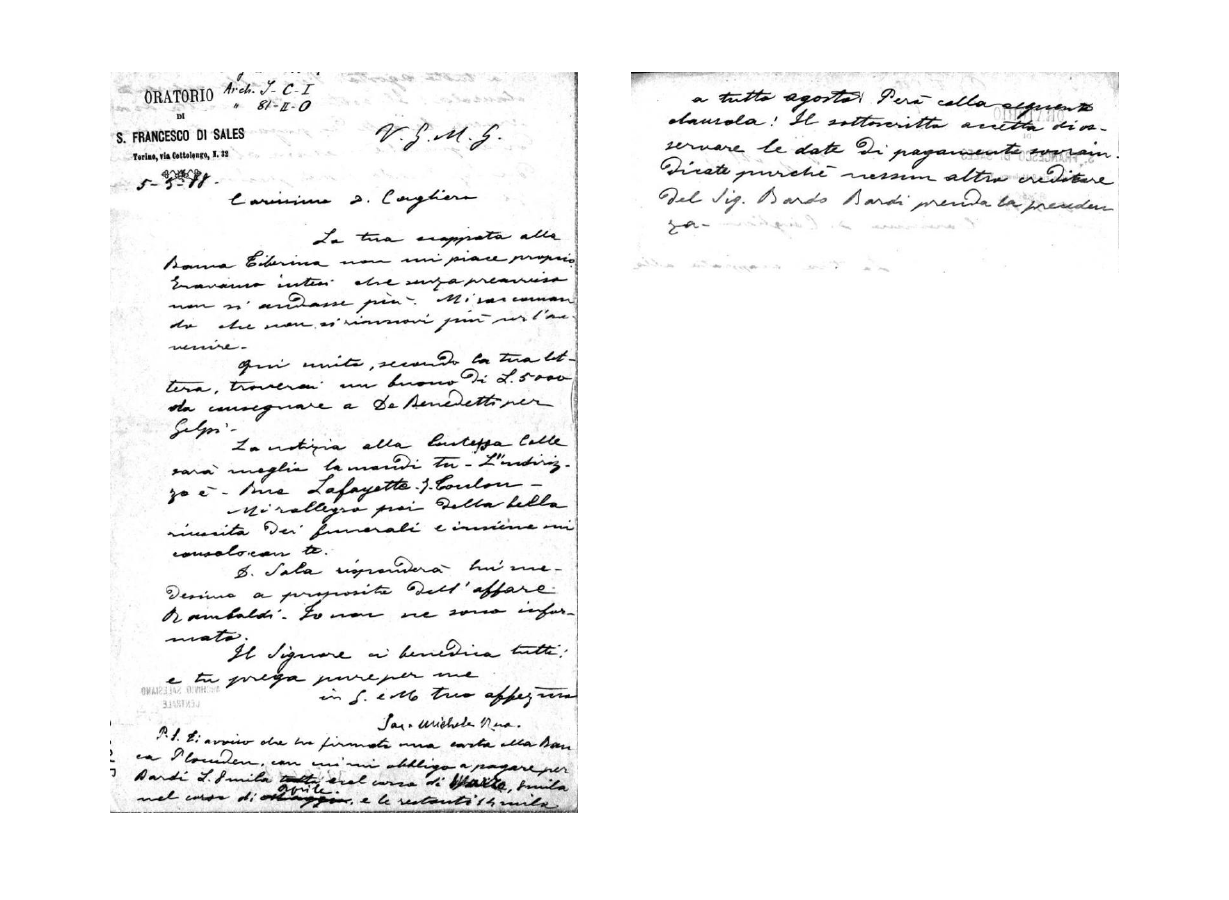 Arch. I-C-I
ORATORIO
" 81-II-O
DI
S. FRANCESCO DI SALES
V. G. M. G.
Torino, via Cottolengo, N. 32
5-3-88.
Carissimo D. Cagliero
La tua scappata alla
Roma Tiberina non mi piace proprio
Eravamo intesi che senza preavviso
non si andasse più. Mi raccoman
do che non si rinnovi più per l'av-
venire.
Qui unita, secondo la tua let-
tera, troverai un buono di L. 5000
da consegnare a De Benedetti per
Gelpi.
La notizia alla Contessa Colle
sarà meglio la mandi tu - L'indiriz-
zo è - Rue Lafayette. J. Toulon -
Mi rallegro poi della bella
riuscita dei funerali e insieme mi
consolo con te.
D. Sala risponderà lui me-
desimo a proposito dell'affare
Rambaldi. Io non ne sono infor-
mato.
Il Signore ci benedica tutti!
e tu prega pure per me
in G. e M. tuo affez.mo
Sac. Michele Rua.
ARCHIVIO SALESIANO
CENTRALE
P.S. Ti avviso che ho firmata una carta alla Ban
ca Plowden, con cui mi obbligo a pagare per
Bardi L. 8 mila nel corso di Marzo, 8 mila
nel corso di aprile, e le restanti 14 mila
a tutto agosto! Però colla seguente
clausola! Il sottoscritto accetta di os-
servare le date di pagamento sovrain
dicate purchè nessun altro creditore
del Sig. Bardo Bardi prenda la preceden
za -